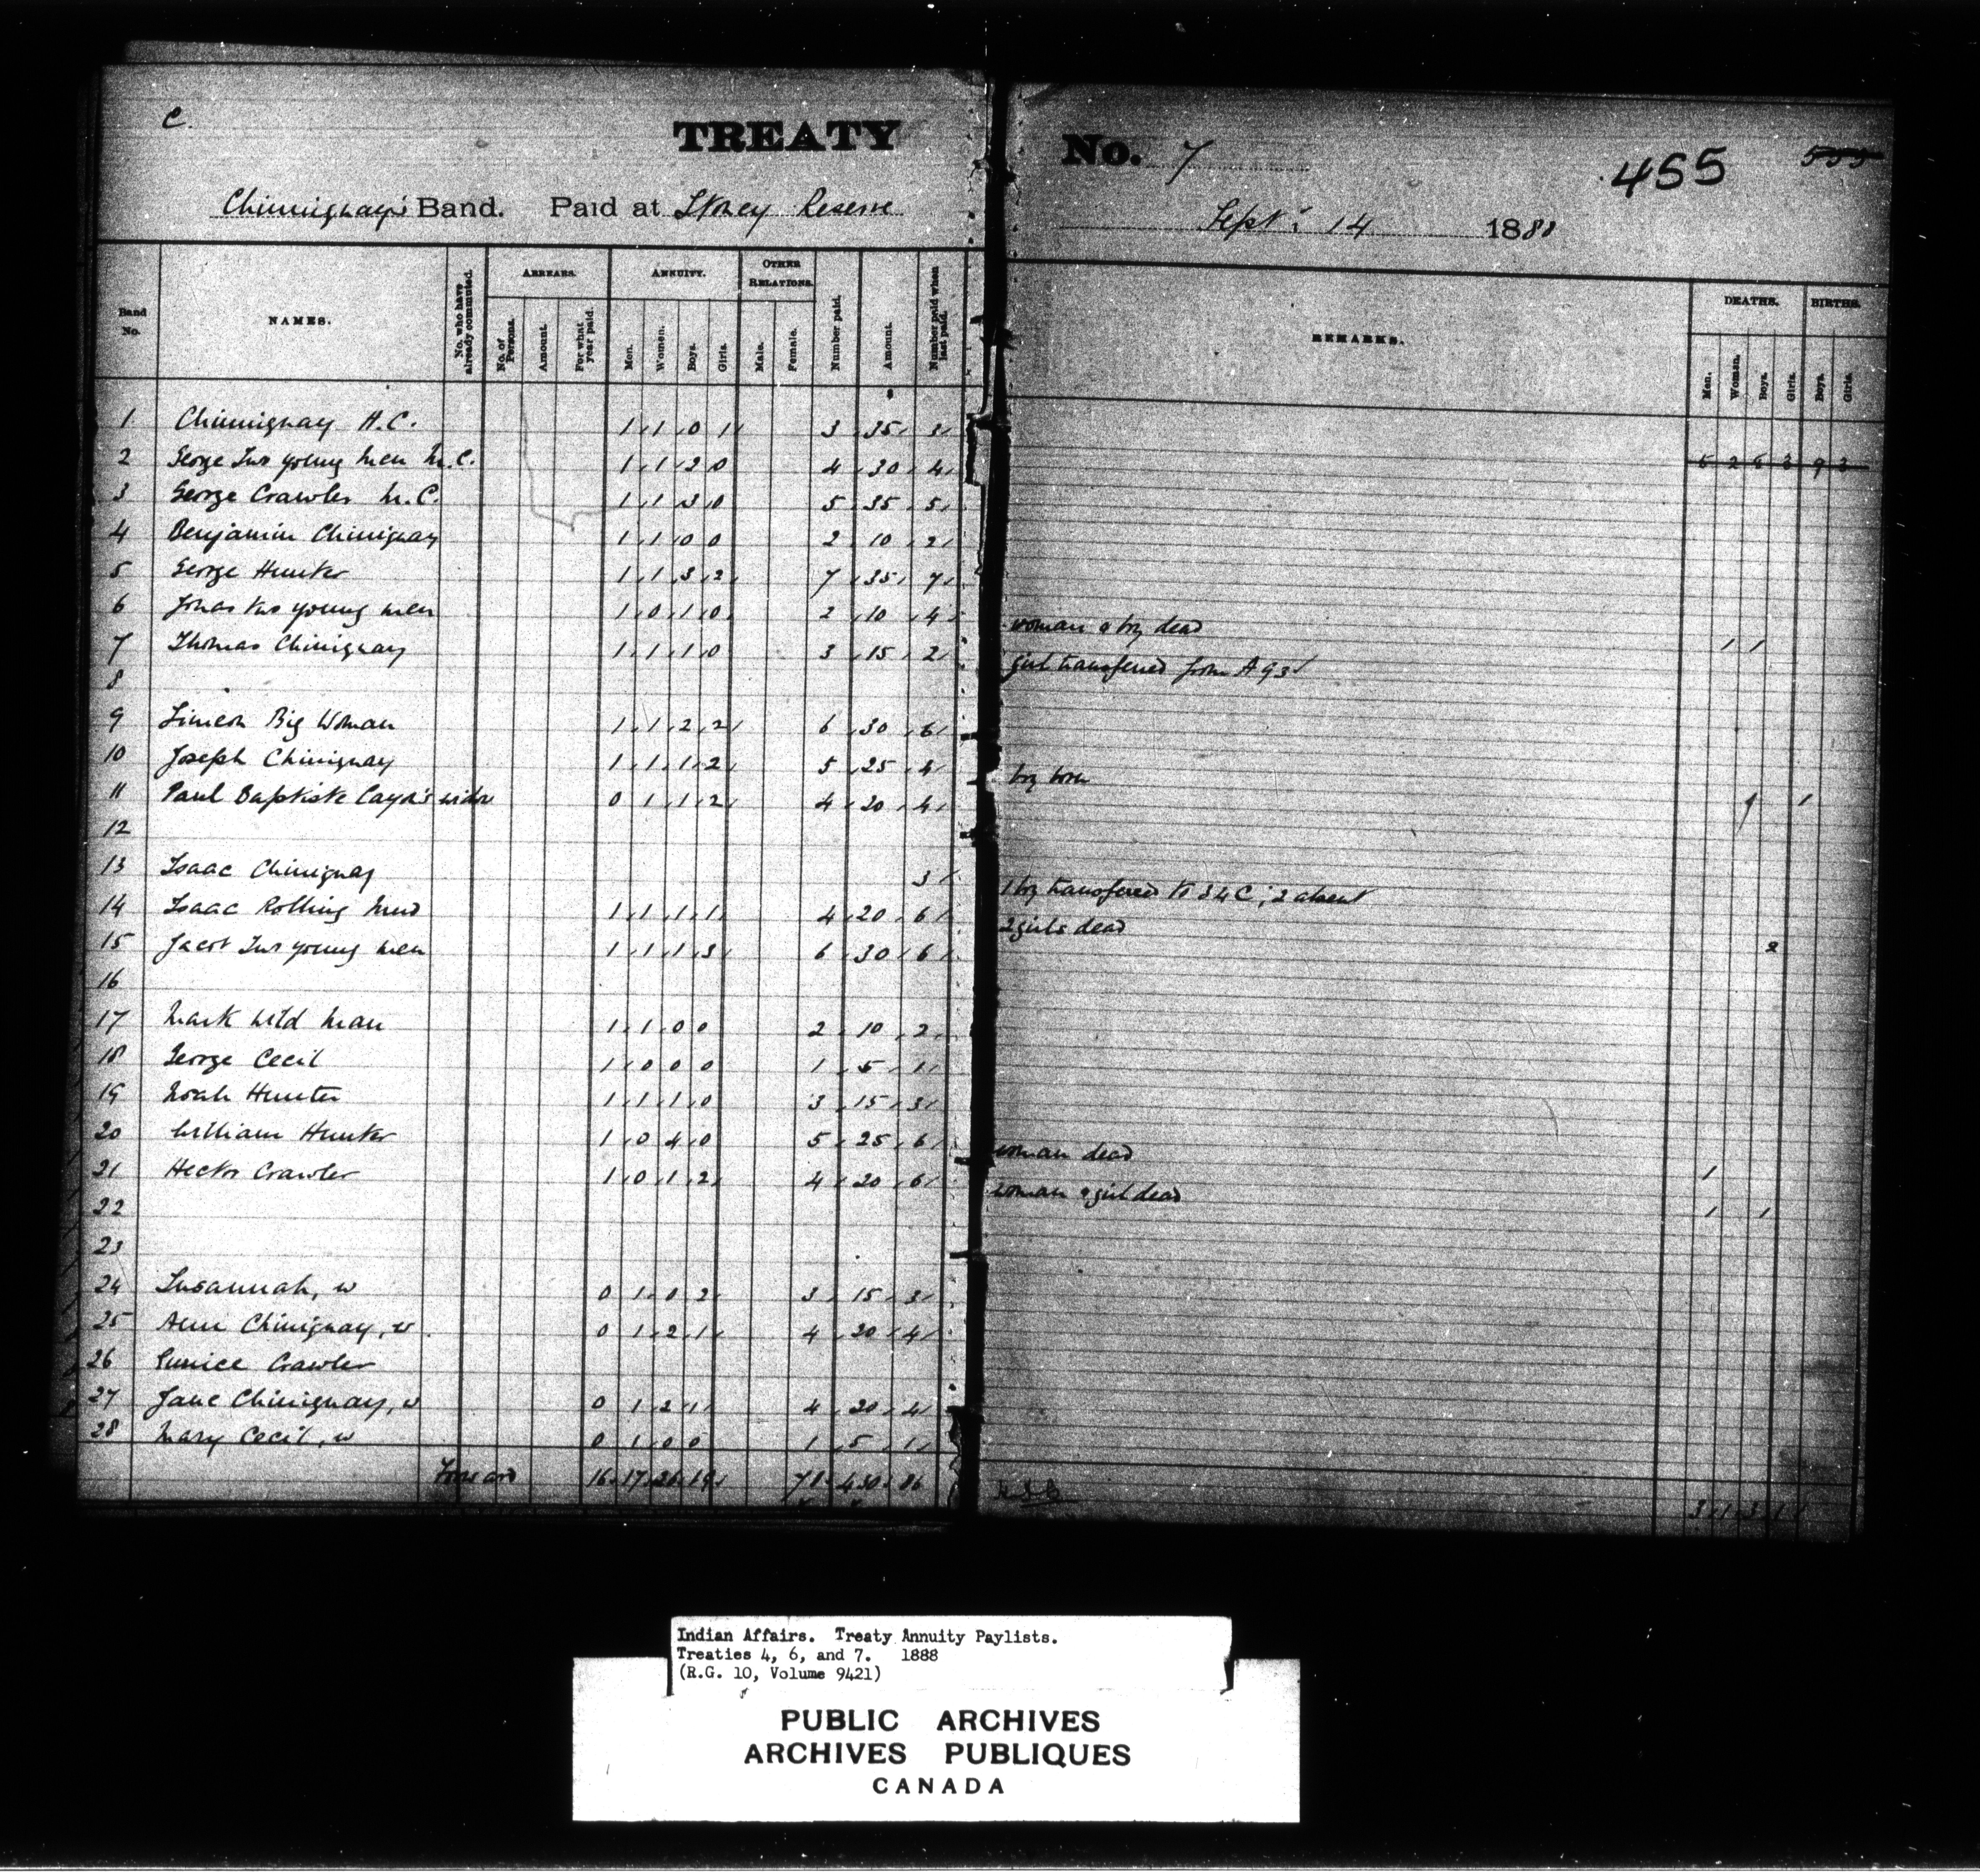 C.
TREATY No. 7 455 555
Chiniquay's Band. Paid at Stoney Reserve Sept. 14 1888
Band No. NAMES. No. who have already commuted. ARREARS. No. of Persons. Amount. For what year paid. ANNUITY. Men. Women. Boys. Girls. OTHER RELATIONS. Male. Female. Number paid. Amount. Number paid when last paid. REMARKS. DEATHS. Men. Woman. Boys. Girls. BIRTHS. Boys. Girls.
1 Chiniquay H.C. 1 1 0 1 3 35 3
2 George Two young men M.C. 1 1 2 0 4 30 4 5 2 6 3 9 3
3 George Crawler M.C. 1 1 3 0 5 35 5
4 Benjamin Chiniquay 1 1 0 0 2 10 2
5 George Hunter 1 1 3 2 7 35 7
6 Jonas two young men 1 0 1 0 2 10 4 woman & boy dead 1 1
7 Thomas Chiniquay 1 1 1 0 3 15 2 girl transferred from A 93
8
9 Simeon Big Woman 1 1 2 2 6 30 6
10 Joseph Chiniquay 1 1 1 2 5 25 4 boy born 1
11 Paul Baptiste Cayon's widow 0 1 1 2 4 20 4
12
13 Isaac Chiniquay 3 1 boy transferred to 34 C; 2 absent
14 Isaac Rolling Mud 1 1 1 1 4 20 6 2 girls dead 2
15 Jacob Two young men 1 1 1 3 6 30 6
16
17 Mark Wild Man 1 1 0 0 2 10 2
18 George Cecil 1 0 0 0 1 5 1
19 Noah Hunter 1 1 1 0 3 15 3
20 William Hunter 1 0 4 0 5 25 6 woman dead 1
21 Hector Crawler 1 0 1 2 4 20 6 woman & girl dead 1 1
22
23
24 Susannah, w 0 1 0 2 3 15 3
25 Ann Chiniquay, w 0 1 2 1 4 20 4
26 Eunice Crawler
27 Jane Chiniquay, w 0 1 2 1 4 20 4
28 Mary Cecil, w 0 1 0 0 1 5 1
Forward 16 17 26 19 78 430 86 3 1 3 1 1
Indian Affairs. Treaty Annuity Paylists.
Treaties 4, 6, and 7. 1888
(R.G. 10, Volume 9421)
PUBLIC ARCHIVES
ARCHIVES PUBLIQUES
CANADA